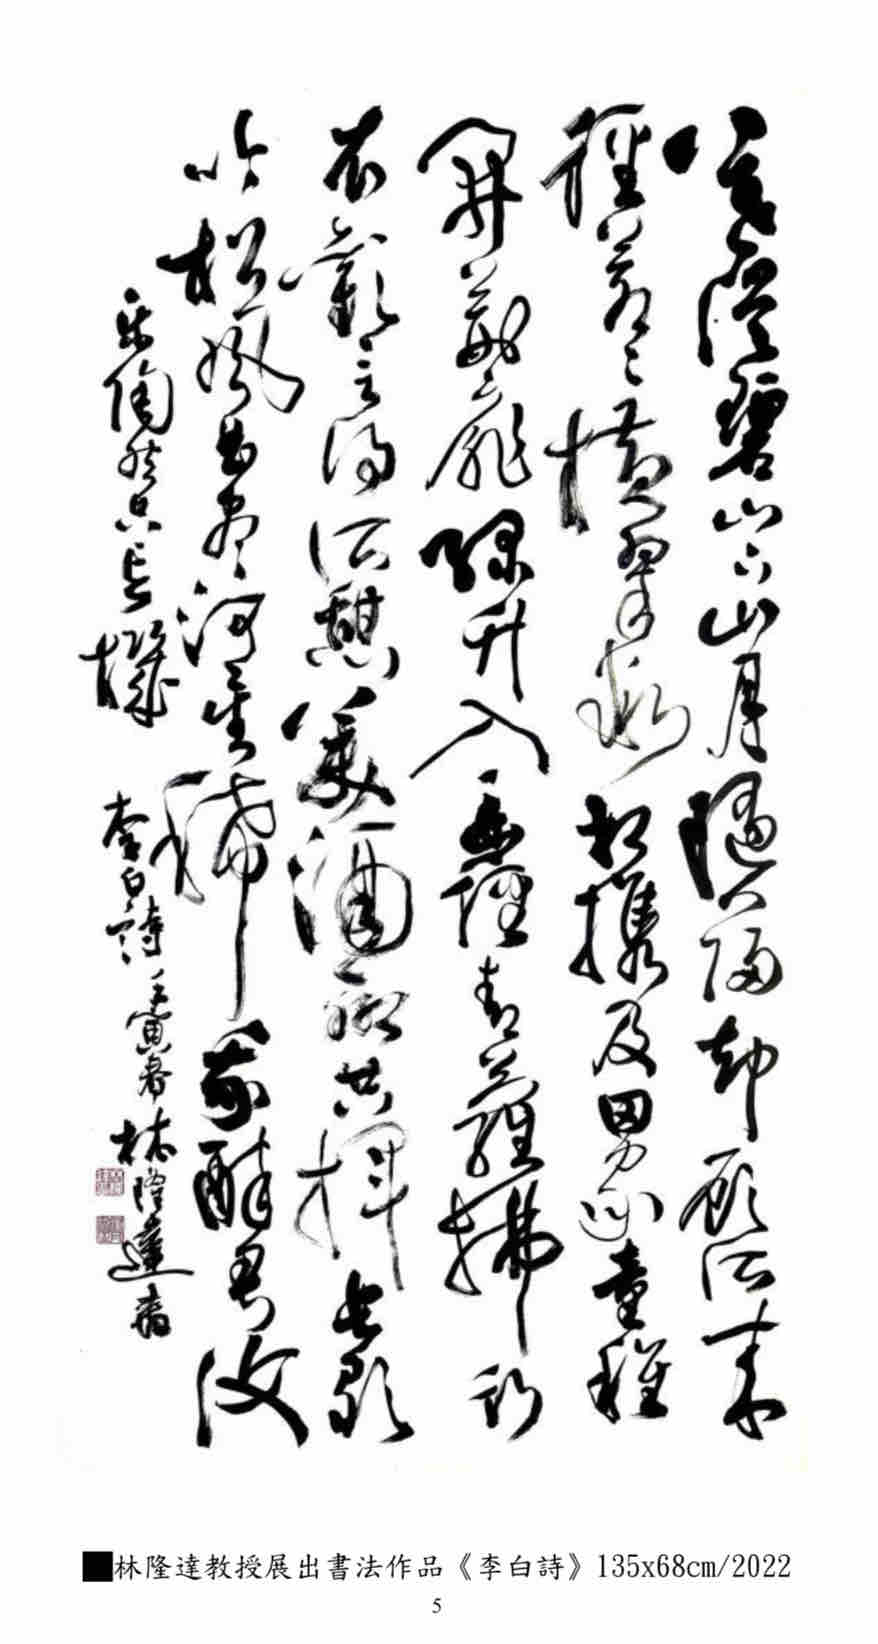 暮從碧山下山月隨人歸却顧所來
徑蒼々橫翠微相攜及田家童稚
開荊扉綠竹入幽徑青蘿拂行
衣歡言得所憩美酒聊共揮長歌
吟松風曲盡河星稀我醉君復
樂陶然共忘機 李白詩 壬寅春 林隆達
■林隆達教授展出書法作品《李白詩》135x68cm/2022
5